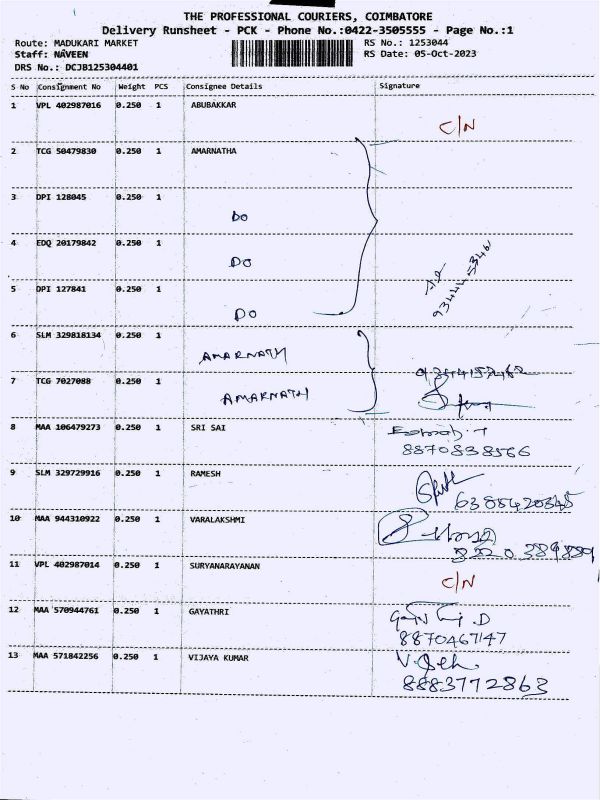 THE PROFESSIONAL COURIERS, COIMBATORE
Delivery Runsheet - PCK - Phone No.:0422-3505555 - Page No.:1
Route: MADUKARI MARKET RS No.: 1253044
Staff: NAVEEN RS Date: 05-Oct-2023
DRS No.: DCJB125304401
S No Consignment No Weight PCS Consignee Details Signature
1 VPL 402987016 0.250 1 ABUBAKKAR
C/N
2 TCG 50479830 0.250 1 AMARNATHA
3 DPI 128045 0.250 1
DO
4 EDQ 20179842 0.250 1
DO
5 DPI 127841 0.250 1
DO
6 SLM 329818134 0.250 1
AMARNATH
7 TCG 7027088 0.250 1
AMARNATH
8 MAA 106479273 0.250 1 SRI SAI
8870838566
9 SLM 329729916 0.250 1 RAMESH
6385420345
10 MAA 944310922 0.250 1 VARALAKSHMI
11 VPL 402987014 0.250 1 SURYANARAYANAN
C/N
12 MAA 570944761 0.250 1 GAYATHRI
8870467147
13 MAA 571842256 0.250 1 VIJAYA KUMAR
8883772863